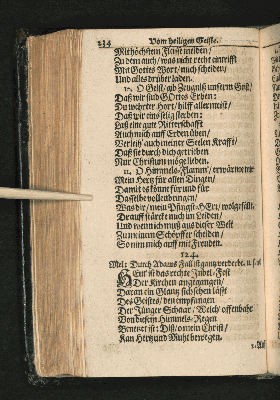 234 Vom heiligen Geiste.
Mit höchstem Fleiß meiden/
Zu dem auch/ was nicht recht eintrifft
Mit Gottes Wort/ auch scheiden/
Und alles drüber laden.
10. O Geist/ gib Zeugniß unserm Geist/
Daß wir sind GOttes Erben:
Du wehrter Hort/ hilff allermeist/
Daß wir einst selig sterben:
Laß eine gute Ritterschafft
Auch mich auff Erden üben/
Verleih auch meiner Seelen Krafft/
Daß sie durch dich getrieben
Nur Christum möge lieben.
11. O Himmels-Flamm/ erwärme mir
Mein Hertz für allen Dingen/
Damit es könne für und für
Dasselbe vollenbringen/
Was dir/ mein Pfingst-HErr/ wolgefällt.
Drauff stärcke mich im Leiden/
Und wenn ich muß aus dieser Welt
Zu meinem Schöpffer scheiden/
So nim mich auff mit Freuden.
124.
Mel: Durch Adams Fall ist gantz verderbt. u.s.f.
HEut ist das rechte Jubel-Fest
Der Kirchen angegangen/
Daran ein Glantz sich sehen lässt
Des Geistes/ den empfangen
Der Jünger Schaar/ Welch' offenbahr
Von diesem Himmels-Regen
Benetzt ist: Diß/ o mein Christ/
Kan Hertz und Muht bewegen.